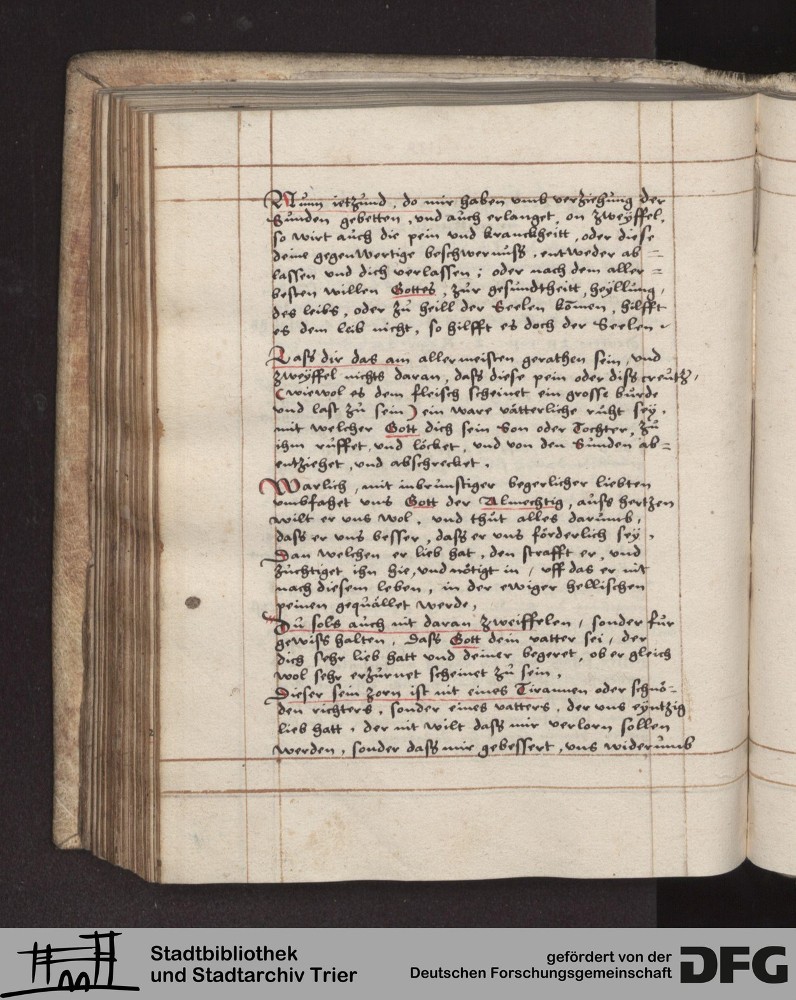 Nunn ietzund, do mir haben umb verziehung der
Sunden gebetten, und auch erlanget, on zweyffel,
so wirt auch die pein und kranckheitt, oder diese
deine gegenwertige beschwernuß, entweder ab =
lassen und dich verlassen; oder nach dem aller =
besten willen Gottes, zur gesundtheitt, heyllung,
des leibs, oder zu heill der Seelen kömen, hilfft
es dem leib nicht, so hilfft es doch der Seelen.
Laß dir das am allermeisten gerathen sein, und
zweyffel nichts daran, daß diese pein oder diß creutz,
(wiewol es dem fleisch scheinet ein grosse burde
und last zu sein) ein ware vätterliche ruht sey,
mit welcher Gott dich sein Son oder Tochter, zu
ihm ruffet, und löcket, und von den Sunden ab=
entziehet, und abschrecket.
Warlich, mit inbrunstiger begerlicher liebten
umbfahet uns Gott der Almechtig, auß hertzen
wilt er uns wol, und thut alles darumb,
daß er uns besser, daß er uns förderlich sey,
Dan welchen er lieb hat, den strafft er, und
zuchtiget ihn hie, und nötigt in, uff das er nit
nach diesem leben, in der ewiger hellischen
peinen gequället werde,
Du sols auch nit daran zweiffelen, sonder fur
gewiß halten, Daß Gott dein vatter sei, der
dich sehr lieb hatt und deiner begeret, ob er gleich
wol sehr erzurnet scheinet zu sein,
Dieser sein zorn ist nit eines Tirannen oder schnö=
den richters, sonder eines vatters, der uns eyntzig
lieb hatt, der nit wilt daß mir verlorn sollen
werden, sonder daß mir gebessert, uns widerumb
Stadtbibliothek
und Stadtarchiv Trier
gefördert von der
Deutschen Forschungsgemeinschaft
DFG